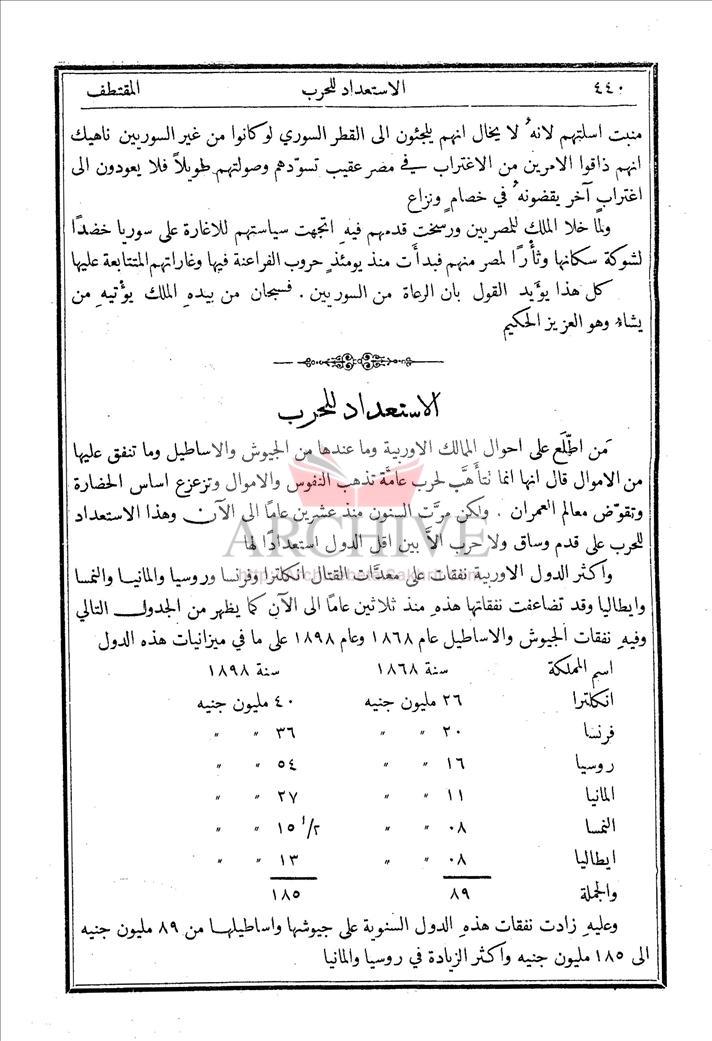 ٤٤٠ الاستعداد للحرب المقتطف
منبت اسلتهم لانهُ لا يخال انهم يلجئون الى القطر السوري لو كانوا من غير السوريين ناهيك
انهم ذاقوا الامرين من الاغتراب في مصر عقيب تسوّدهم وصولتهم طويلاً فلا يعودون الى
اغتراب آخر يقضونهُ في خصام ونزاع
ولما خلا الملك للمصريين ورسخت قدمهم فيهِ اتجهت سياستهم للاغارة على سوريا خضدًا
لشوكة سكانها وثأرًا لمصر منهم فبدأت منذ يومئذٍ حروب الفراعنة فيها وغاراتهم المتتابعة عليها
كل هذا يؤيد القول بان الرعاة من السوريين . فسبحان من بيدهِ الملك يؤتيهِ من
يشاء وهو العزيز الحكيم
الاستعداد للحرب
مَن اطَّلَع على احوال الممالك الاوربية وما عندها من الجيوش والاساطيل وما تنفق عليها
من الاموال قال انها انما تتأهَّب لحرب عامَّة تذهب النفوس والاموال وتزعزع اساس الحضارة
وتقوّض معالم العمران . ولكن مرَّت السنون منذ عشرين عاماً الى الآن وهذا الاستعداد
للحرب على قدم وساق ولا حرب الاَّ بين اقل الدول استعدادًا لها
ARCHIVE
واكثر الدول الاوربية نفقات على معدَّات القتال انكلترا وفرنسا وروسيا والمانيا والنمسا
وايطاليا وقد تضاعفت نفقاتها هذهِ منذ ثلاثين عاماً الى الآن كما يظهر من الجدول التالي
وفيهِ نفقات الجيوش والاساطيل عام ١٨٦٨ وعام ١٨٩٨ على ما في ميزانيات هذه الدول
اسم المملكة سنة ١٨٦٨ سنة ١٨٩٨
انكلترا ٢٦ مليون جنيه ٤٠ مليون جنيه
فرنسا ٢٠ " " ٣٦ " "
روسيا ١٦ " " ٥٤ " "
المانيا ١١ " " ٢٧ " "
النمسا ٠٨ " " ١٥ ١/٢ " "
ايطاليا ٠٨ " " ١٣ " "
والجملة ٨٩ ١٨٥
وعليهِ زادت نفقات هذهِ الدول السنوية على جيوشها واساطيلها من ٨٩ مليون جنيه
الى ١٨٥ مليون جنيه واكثر الزيادة في روسيا والمانيا